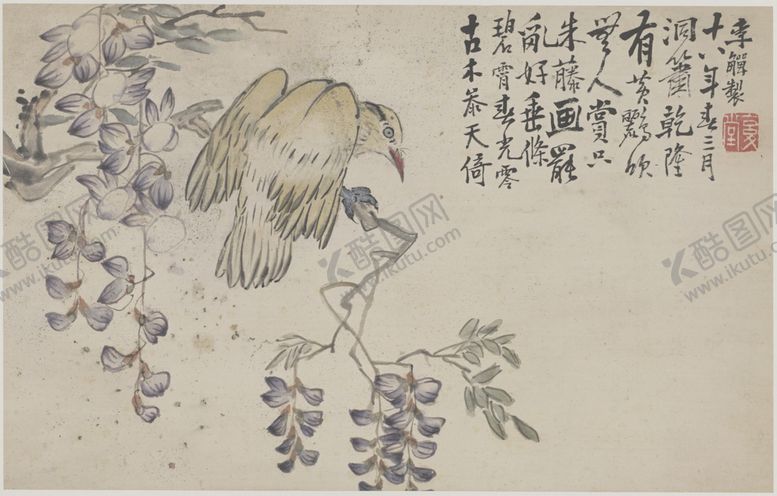 古木叅天倚
碧霄春光零
亂好垂條
朱藤畫罷
無人賞只
有黄鸝頌
洞簫乾隆
十八年春三月
李鱓製
酷图网
www.ikutu.com
酷图网
www.ikutu.com
酷图网
www.ikutu.com